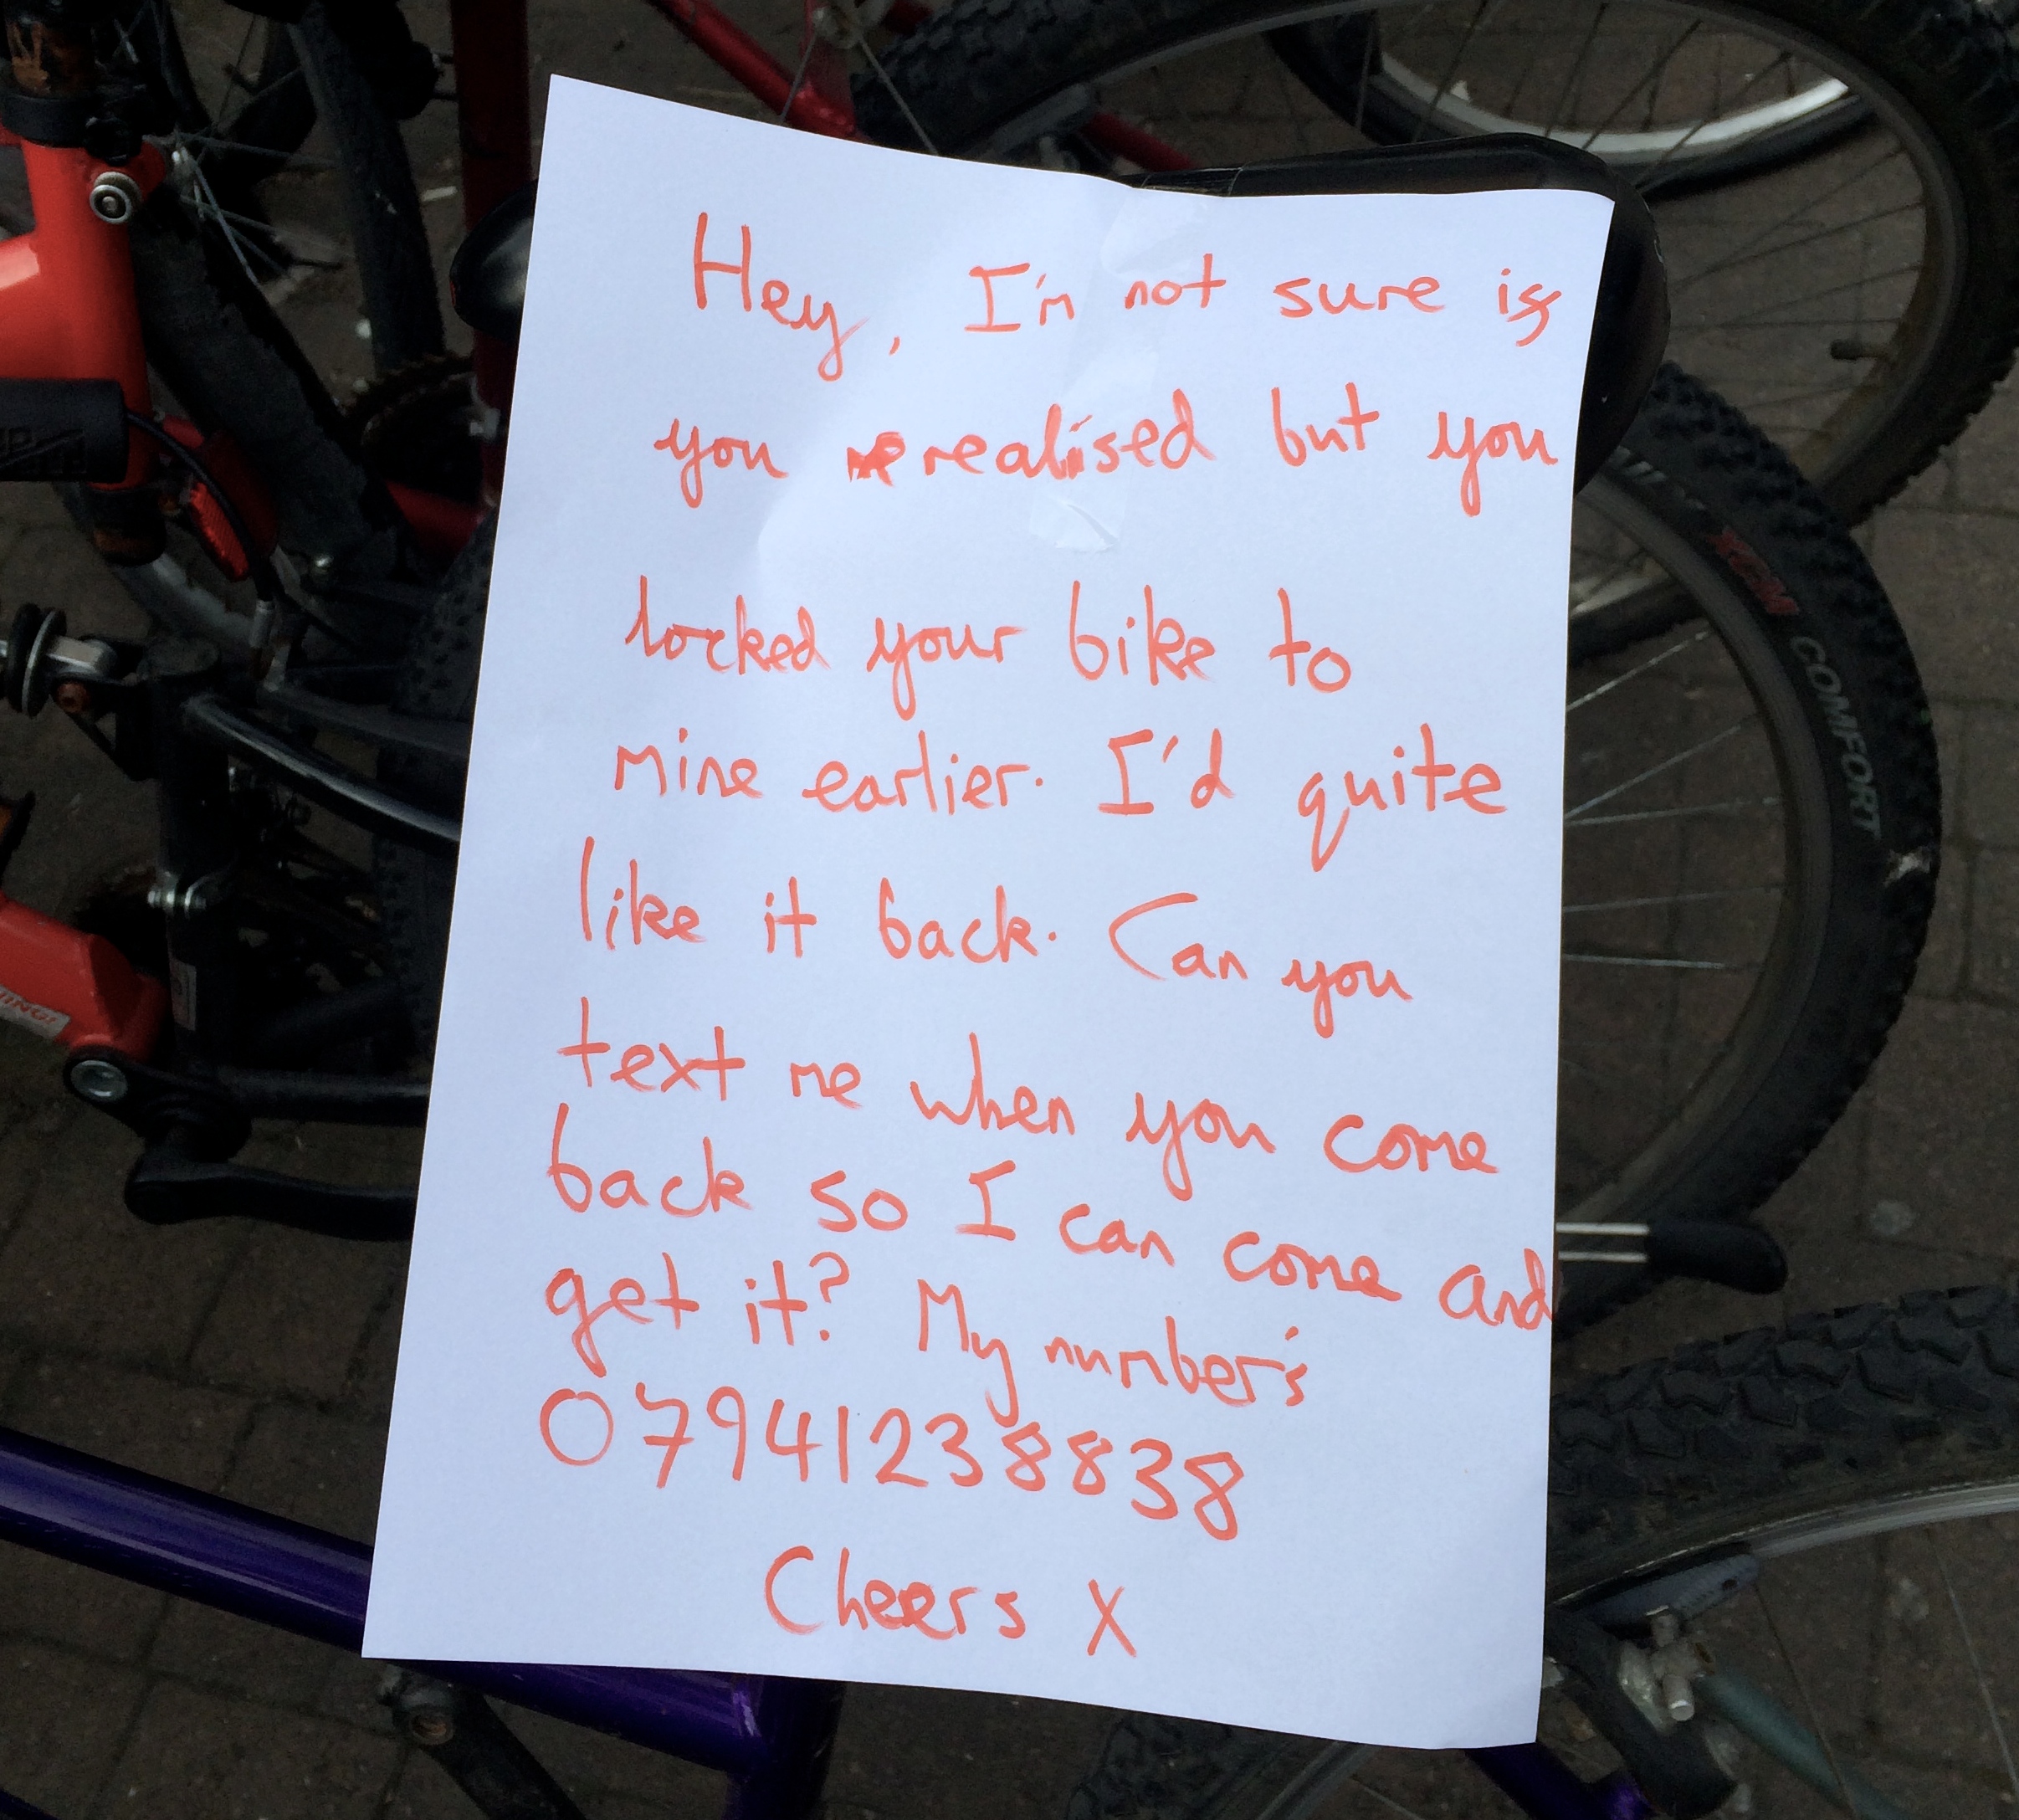 Hey, I'm not sure is
you re realised but you
locked your bike to
mine earlier. I'd quite
like it back. Can you
text me when you come
back so I can come and
get it? My number's
07941238838
Cheers X
XCM COMFORT